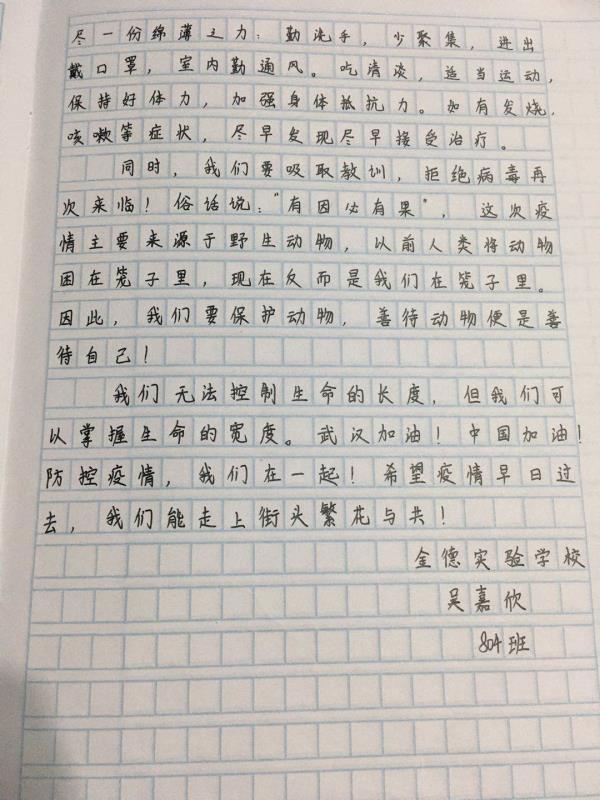 尽一份绵薄之力：勤洗手，少聚集，进出
戴口罩，室内勤通风。吃清淡，适当运动，
保持好体力，加强身体抵抗力。如有发烧，
咳嗽等症状，尽早发现尽早接受治疗。
同时，我们要吸取教训，拒绝病毒再
次来临！俗话说：“有因必有果”，这次疫
情主要来源于野生动物，以前人类将动物
困在笼子里，现在反而是我们在笼子里。
因此，我们要保护动物，善待动物便是善
待自己！
我们无法控制生命的长度，但我们可
以掌握生命的宽度。武汉加油！中国加油！
防控疫情，我们在一起！希望疫情早日过
去，我们能走上街头繁花与共！
金德实验学校
吴嘉欣
804班